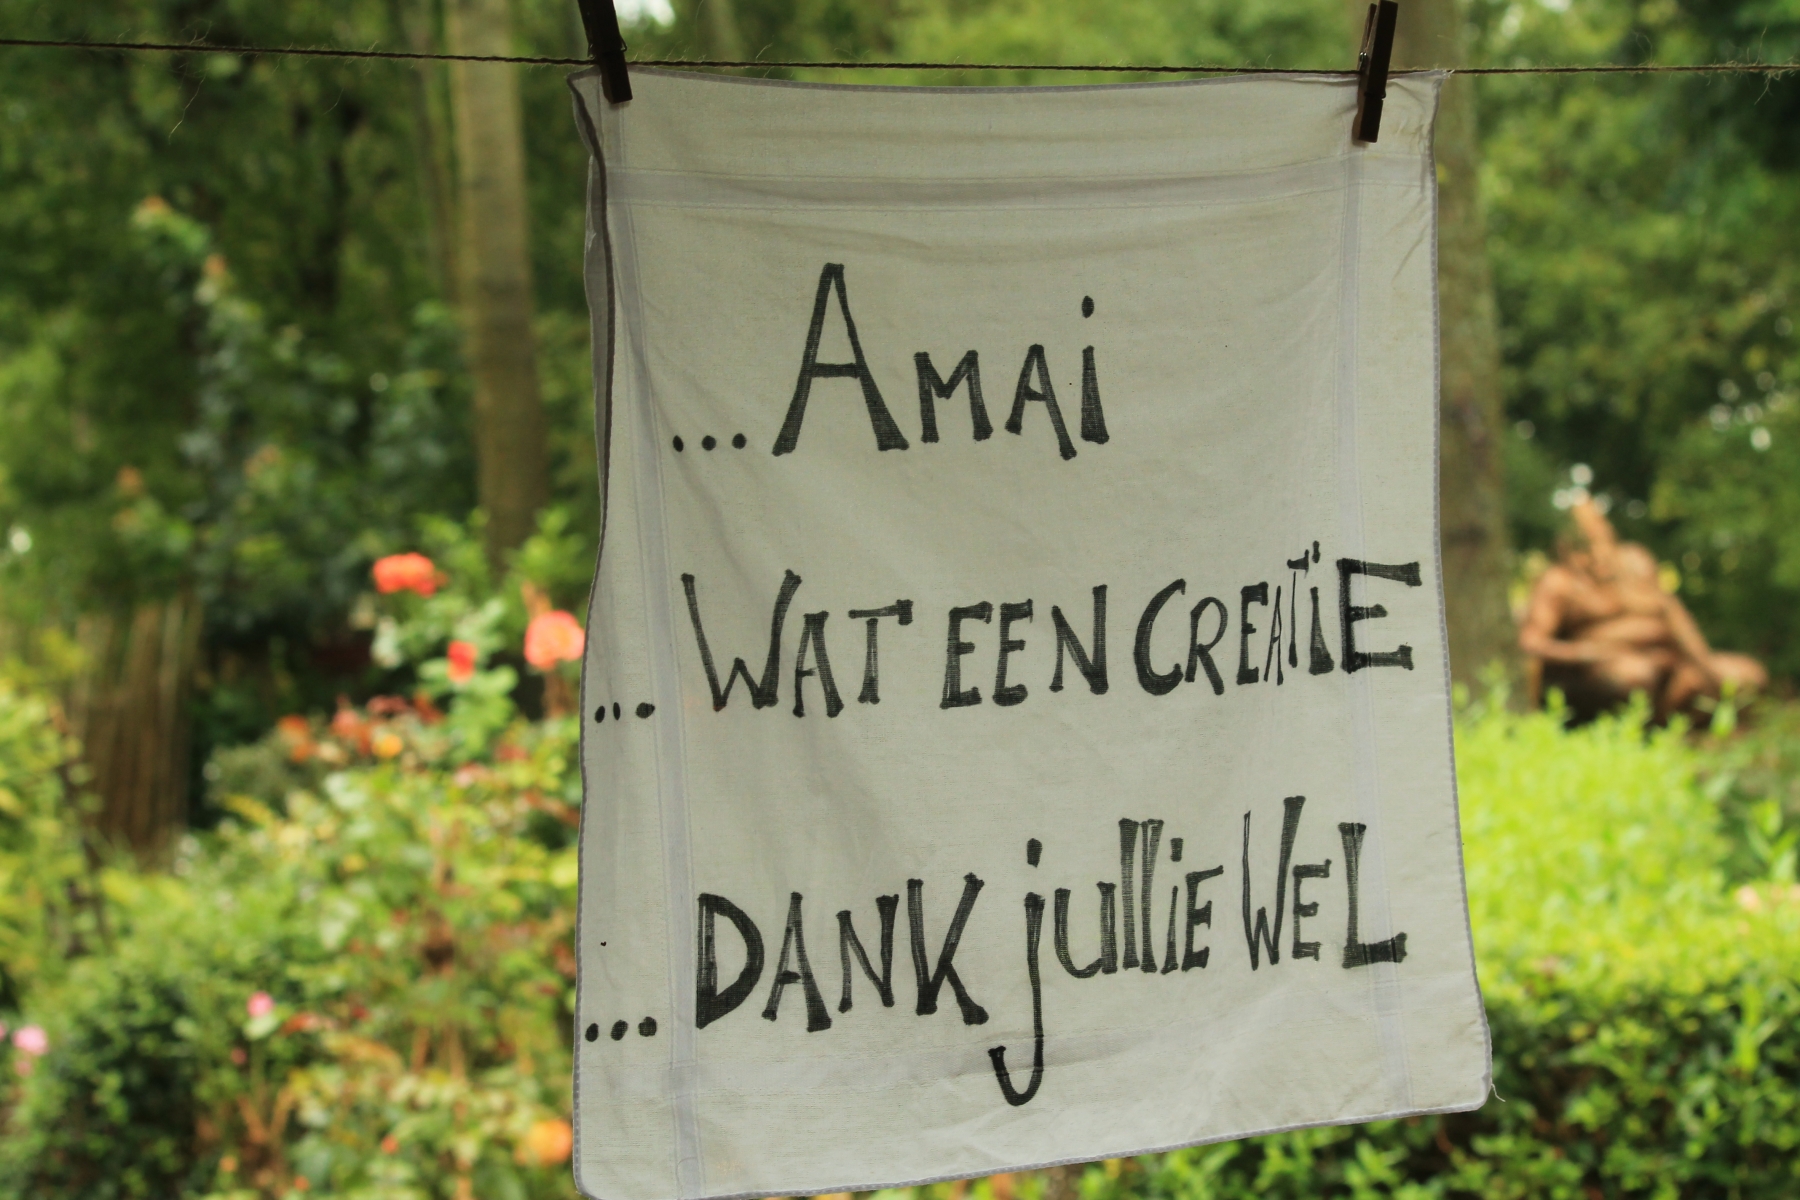 ...Amai
...WAT EEN CREATiE
...DANK jullie WEL